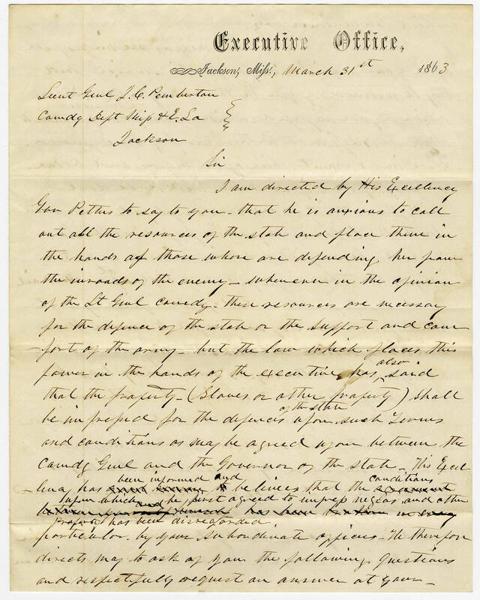 Executive Office,
Jackson, Miss, March 31st 1863
Lieut Genl J. C. Pemberton
Comdg Dept Miss & E. La
Jackson
Sir
I am directed by His Excellency
Gov Pettus to say to you - that he is anxious to call
out all the resources of the state and place them in
the hands of those who are defending her from
the inroads of the enemy - whenever in the opinion
of the Lt Genl comdg - these resources are necessary
for the defence of the state or the support and com
fort of the army - but the law which places this
power in the hands of the executive has also said
that the property - (Slaves or other property) shall
be impressed for the defences of the state upon such terms
and conditions as may be agreed upon between the
Comdg Genl and the Governor of the state - His Excel
lency has been informed and believes that the conditions
upon which he first agreed to impress negroes and other
property has been disregarded
particular by your subordinate officers - He therefore
directs me to ask of you the following questions
and respectfully request an answer at your -